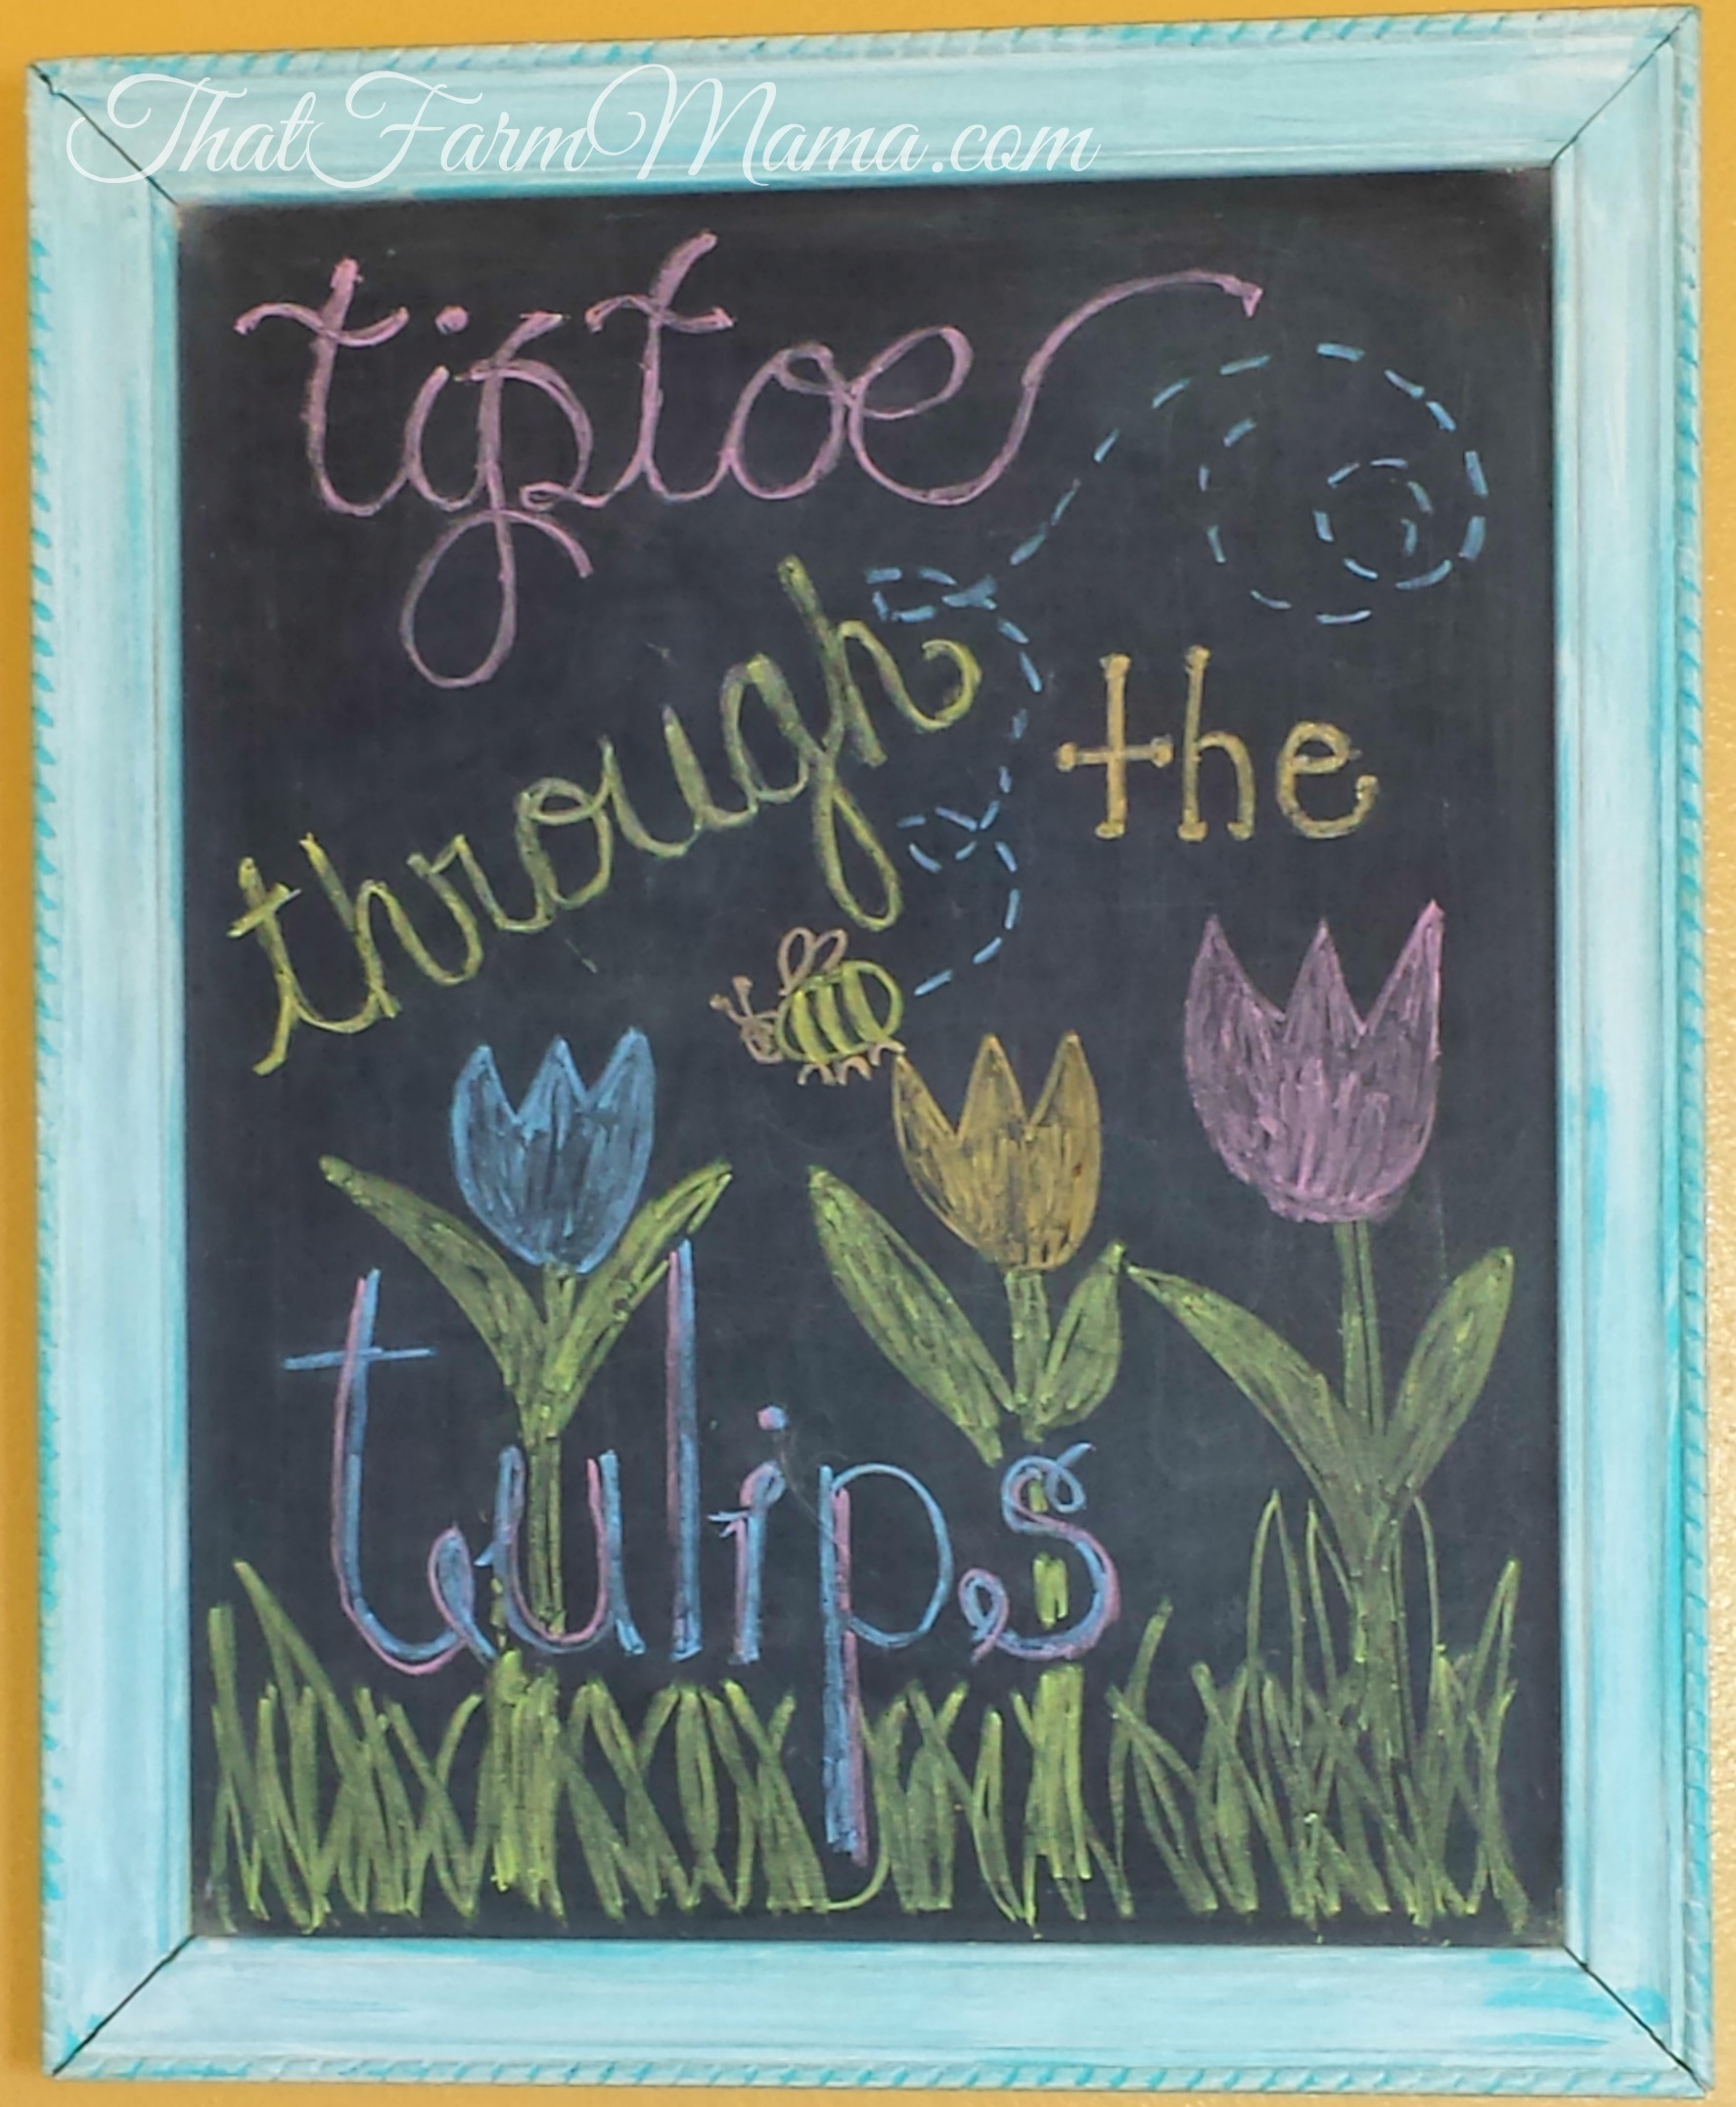 ThatFarmMama.com
tiptoe
through
the
tulips